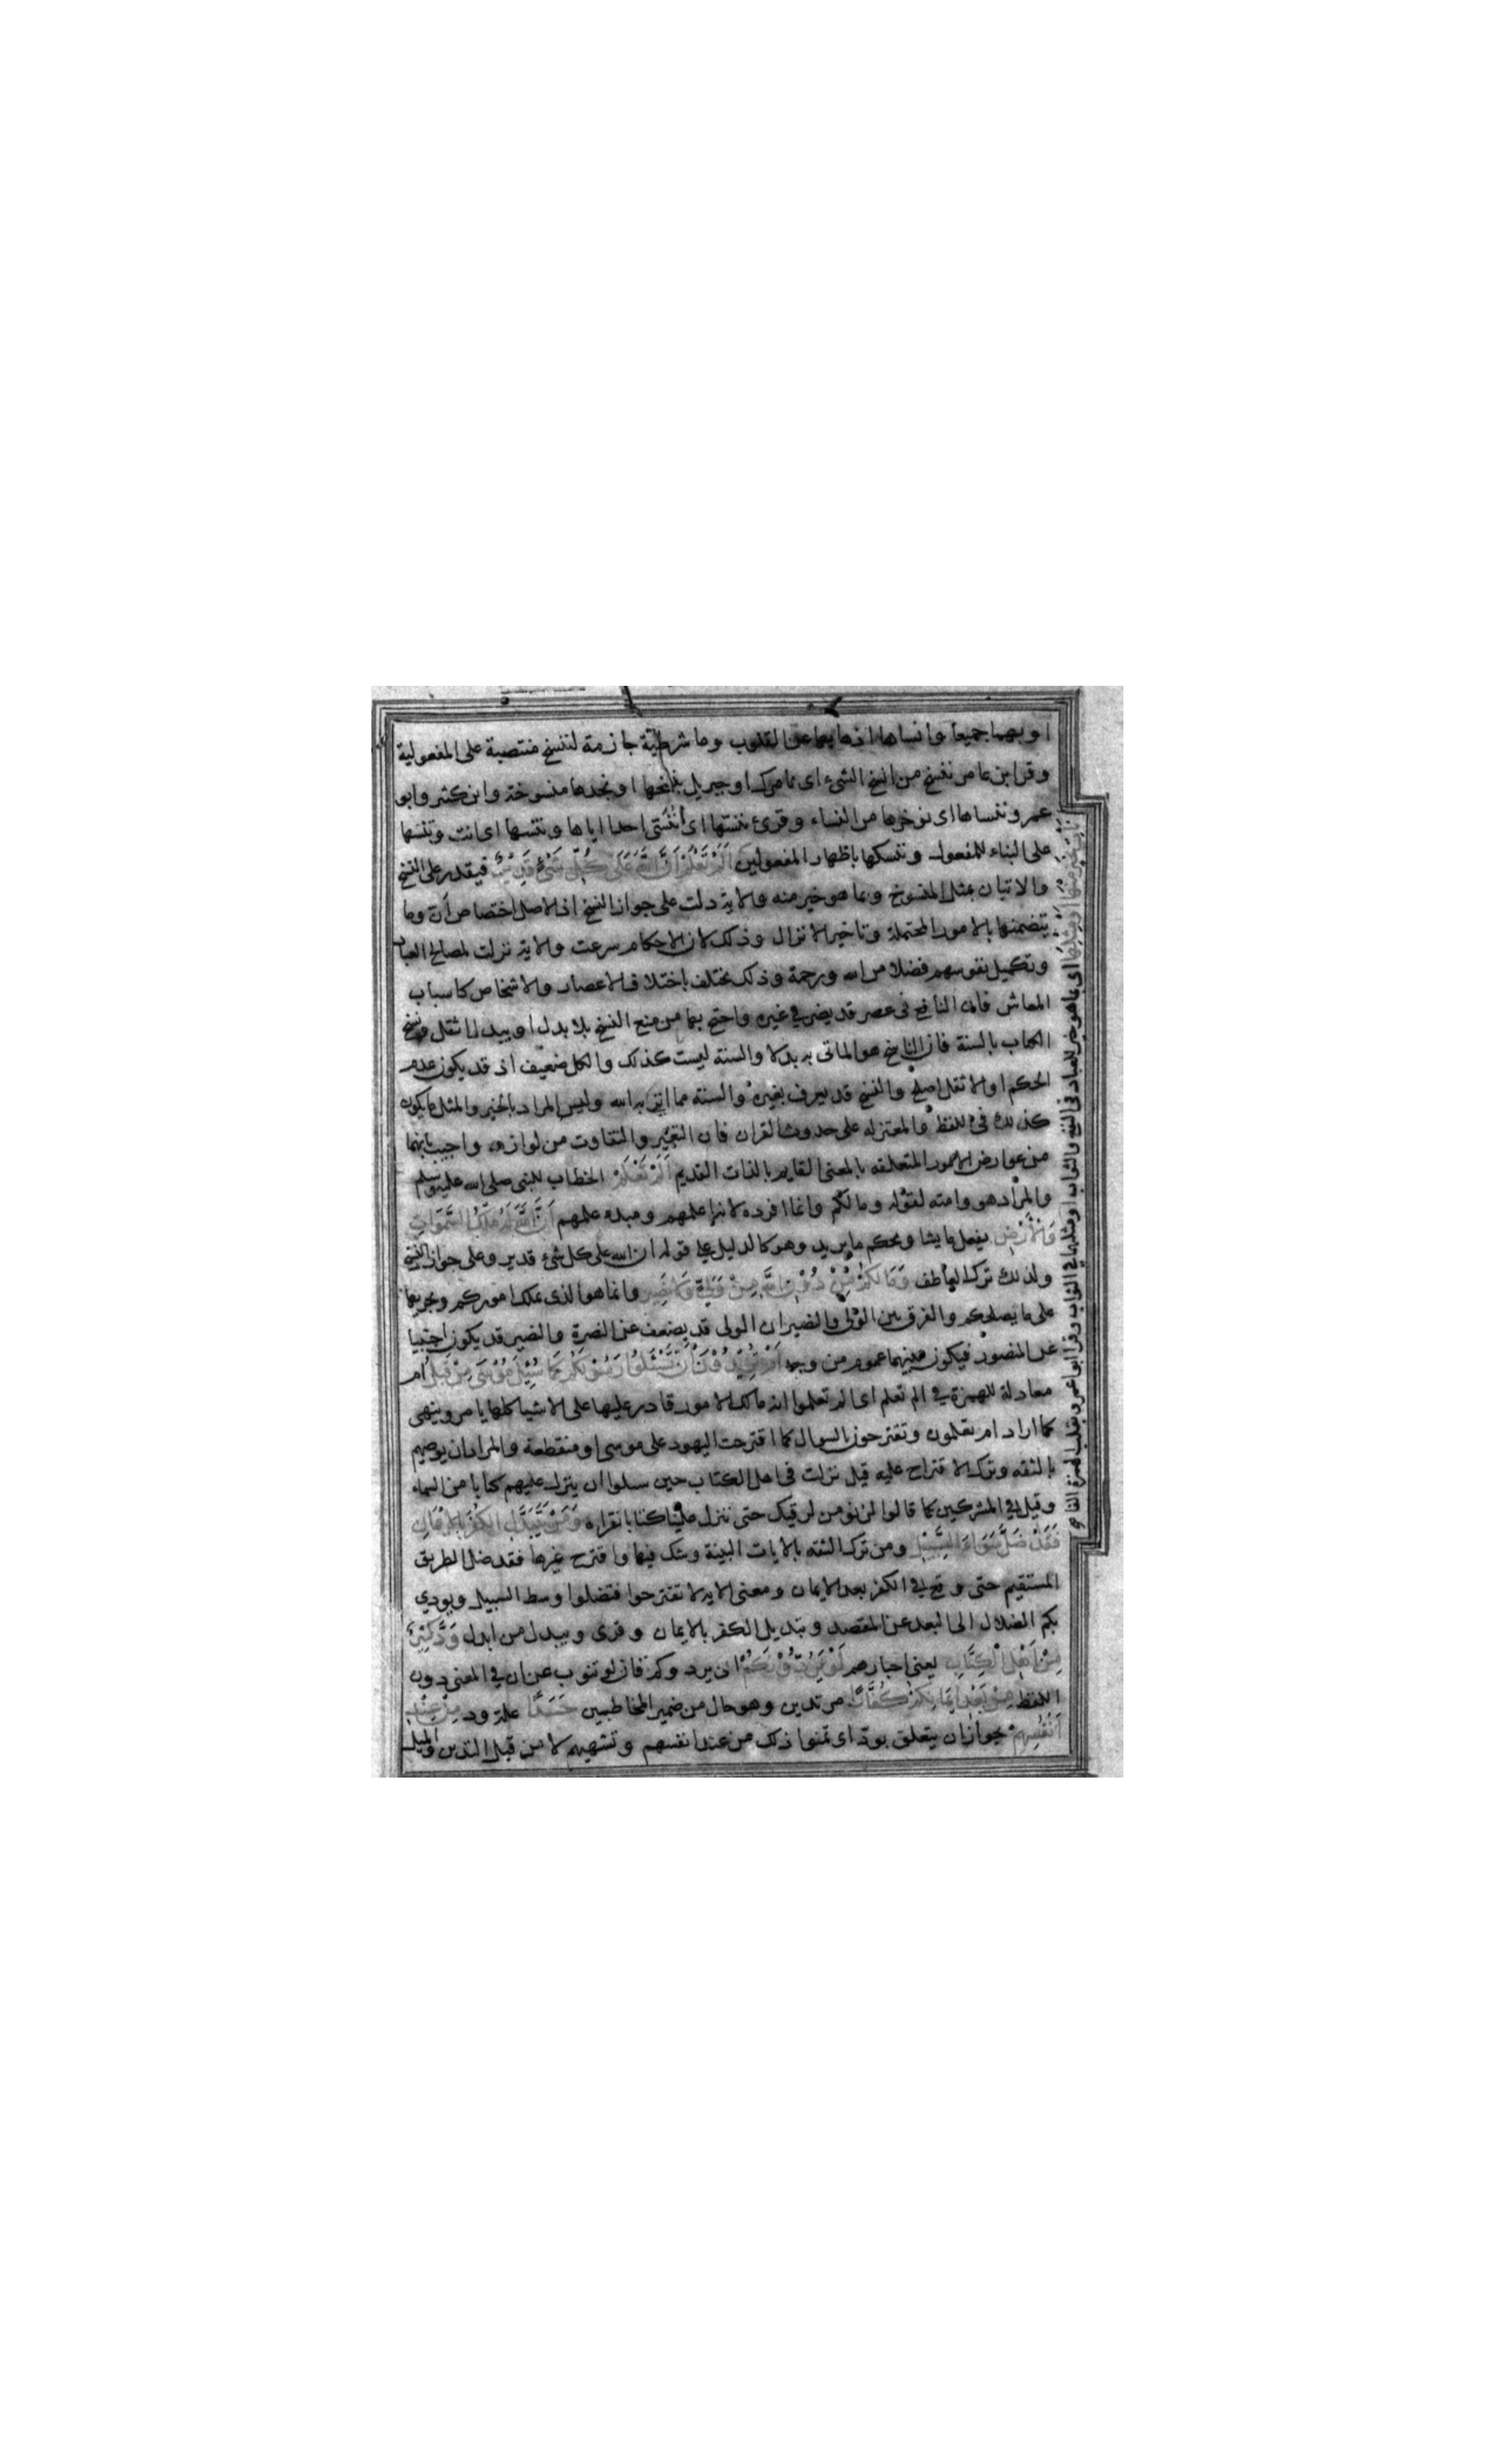 او بهما جميعا وانساها اذهابها عن القلوب وما شرطية جازمة لننسخ منتصبة على المفعولية
وقرا ابن عامر ننسخ من انسخ الشئ اى نامرك او جبريل بنسخها او نجدها منسوخة وابن كثير وابو
عمرو ننساها اى نوخرها من النساء وقرئ ننسها اى ننسى احدا اياها وتنسها اى انت وتنسها
على البناء للمفعول وننسكها باظهار المفعولين اَلَمْ تَعْلَمْ اَنَّ اللَّهَ عَلَى كُلِّ شَئٍ قَدِيْرٌ فيقدر على النسخ
والاتيان بمثل المنسوخ وبما هو خير منه والاية دلت على جواز النسخ اذ الاصل اختصاص ان وما
يتضمنها بالامور المحتملة وتاخير الانزال وذلك لان الاحكام سرعت والاية نزلت لمصالح العباد
وتكميل نفوسهم فضلا من الله ورحمة وذلك يختلف باختلاف الاعصار والاشخاص كاسباب
المعاش فان النافع فى عصر قد يضر في غيره واحتج بها من منع النسخ بلا بدل او ببدل اثقل ونسخ
الكتاب بالسنة فان الناسخ هو الماتى به بدلا والسنة ليست كذلك والكل ضعيف اذ قد يكون عدم
الحكم او الاثقل اصلح والنسخ قد يعرف بغيره والسنه مما اتى به الله وليس المراد بالخير والمثل ما يكون
كذلك فى اللفظ والمعتزله على حدوث القران فان التغير والتفاوت من لوازمه واجيب بانهما
من عوارض الامور المتعلقه بالمعنى القايم بالذات القديم اَلَمْ تَعْلَمْ الخطاب للنبى صلى الله عليه وسلم
والمراد هو وامته لقوله وما لكم وانما افرده لانه اعلمهم ومبدء علمهم اَنَّ اللَّهَ لَهُ مُلْكُ السَّمَوَاتِ
وَالْاَرْضِ يفعل ما يشا ويحكم ما يريد وهو كالدليل على قوله ان الله على كل شئ قدير وعلى جواز النسخ
ولذلك ترك العاطف وَمَا لَكُمْ مِّنْ دُوْنِ اللَّهِ مِنْ وَّلِيٍّ وَّلَا نَصِيْرٍ وانما هو الذى يملك اموركم ويجريها
على ما يصلحكم والفرق بين الولى والنصير ان الولى قد يضعف عن النصرة والنصير قد يكون اجنبيا
عن المنصور فيكون بينهما عموم من وجه اَمْ تُرِيْدُوْنَ اَنْ تَسْئَلُوْا رَسُوْلَكُمْ كَمَا سُئِلَ مُوْسَى مِنْ قَبْلُ ام
معادلة للهمزة في الم تعلم اى الم تعلموا انه مالك الامور قادر عليها على الاشيا كلها يامر وينهى
كما اراد ام تعلمون وتقترحون بالسوال كما اقترحت اليهود على موسى او منقطعة والمراد ان يوصيهم
بالثقه وترك الاقتراح عليه قيل نزلت فى اهل الكتاب حين سلوا ان ينزل عليهم كتابا من السماء
وقيل في المشركين كما قالوا لن نومن لرقيك حتى تنزل علينا كتابا نقراه وَمَنْ يَّتَبَدَّلِ الْكُفْرَ بِالْاِيْمَانِ
فَقَدْ ضَلَّ سَوَاءَ السَّبِيْلِ ومن ترك الثقه بالايات البينة وشك فيها واقترح غيرها فقد ضل الطريق
المستقيم حتى وقع في الكفر بعد الايمان ومعنى الايه لا تقترحوا فتضلوا وسط السبيل ويودي
بكم الضلال الى البعد عن المقصد وتبديل الكفر بالايمان وقرى ويبدل من ابدل وَدَّ كَثِيْرٌ
مِّنْ اَهْلِ الْكِتَابِ يعنى احبارهم لَوْ يَرُدُّوْنَكُمْ ان يردوكم فان لو تنوب عن ان في المعنى دون
اللفظ مِنْ بَعْدِ اِيْمَانِكُمْ كُفَّارًا مرتدين وهو حال من ضمير المخاطبين حَسَدًا علة ود مِنْ عِنْدِ
اَنْفُسِهِمْ يجوز ان يتعلق بود اى تمنوا ذلك من عند انفسهم وتشهيهم لا من قبل التدين والميل
نَاْتِ بِخَيْرٍ مِّنْهَا اَوْ مِثْلِهَا اى بما هو خير للعباد فى النفع والثواب او مثلها في الثواب وقرا ابو عمرو بقلب الهمزة الفا